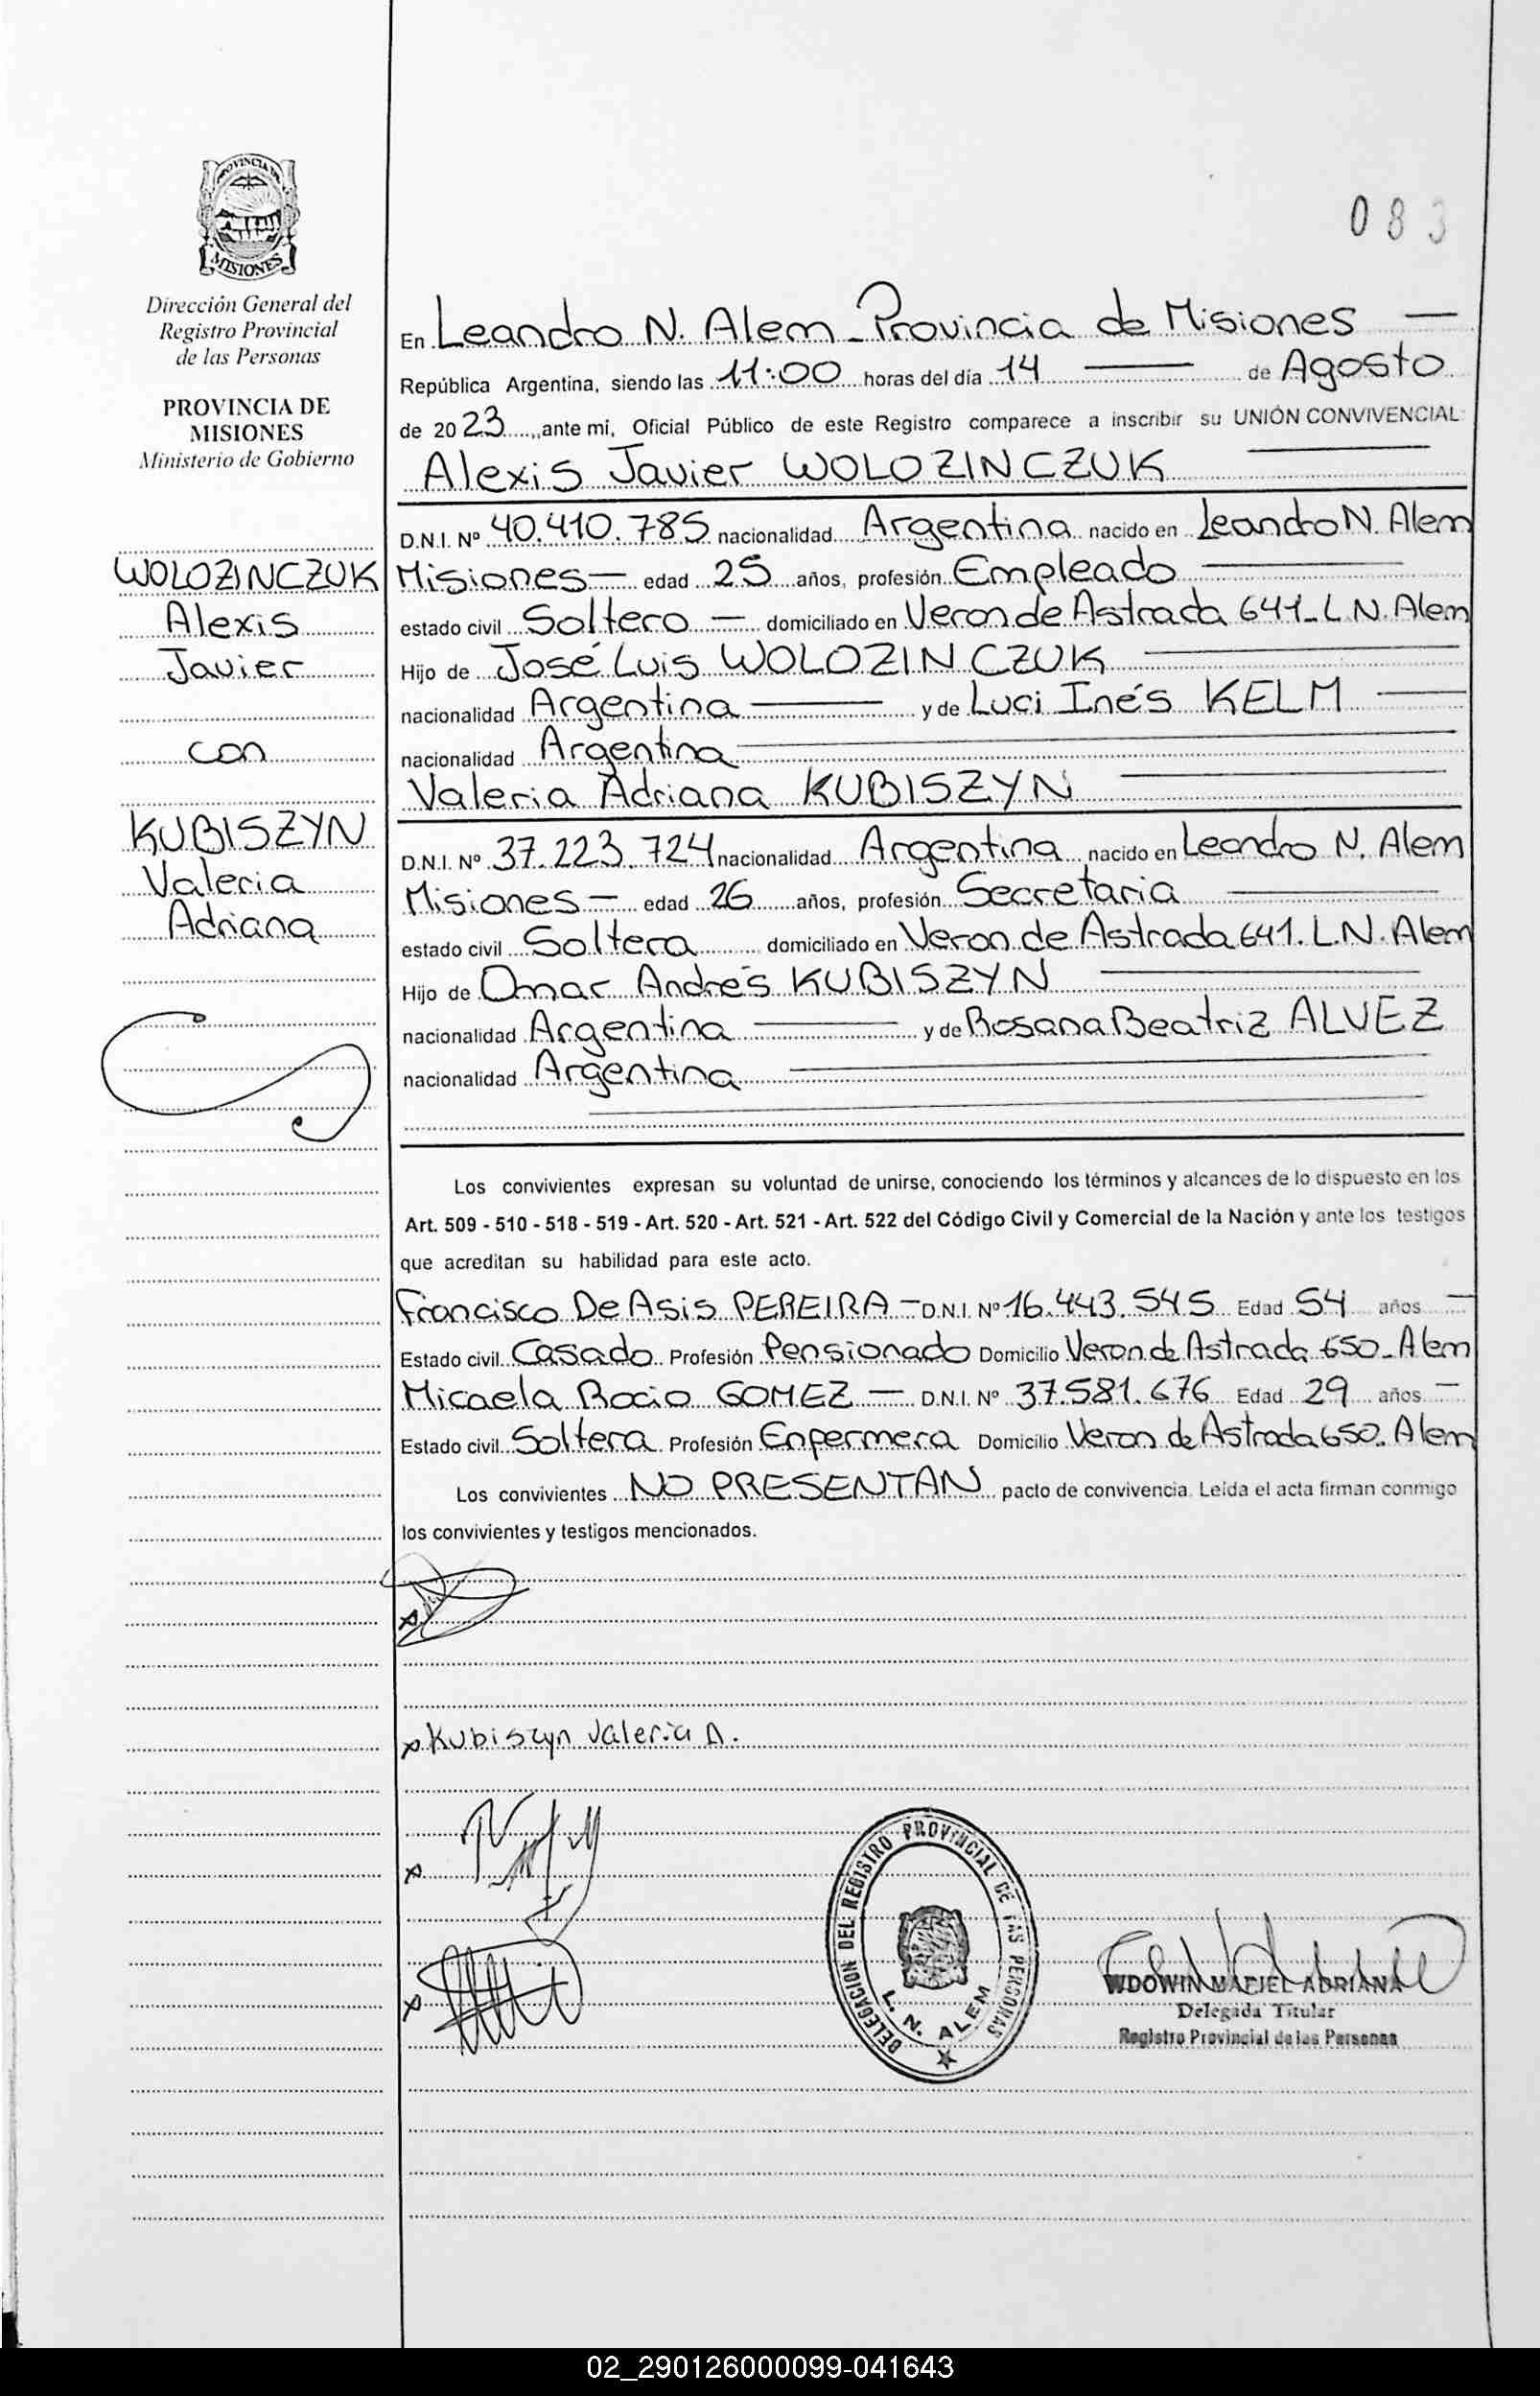 PROVINCIA DE
MISIONES
Dirección General del
Registro Provincial
de las Personas
PROVINCIA DE
MISIONES
Ministerio de Gobierno
WOLOZINCZUK
Alexis
Javier
con
KUBISZYN
Valeria
Adriana
083
En Leandro N. Alem - Provincia de Misiones —
República Argentina, siendo las 11:00 horas del día 14 — de Agosto
de 2023, ante mí, Oficial Público de este Registro comparece a inscribir su UNIÓN CONVIVENCIAL:
Alexis Javier WOLOZINCZUK —
D.N.I. Nº 40.410.785 nacionalidad Argentina nacido en Leandro N. Alem
Misiones — edad 25 años, profesión Empleado —
estado civil Soltero — domiciliado en Veron de Astrada 641 - L.N. Alem
Hijo de José Luis WOLOZINCZUK —
nacionalidad Argentina — y de Luci Inés KELM —
nacionalidad Argentina —
Valeria Adriana KUBISZYN —
D.N.I. Nº 37.223.724 nacionalidad Argentina nacido en Leandro N. Alem
Misiones — edad 26 años, profesión Secretaria —
estado civil Soltera domiciliado en Veron de Astrada 641. L.N. Alem
Hijo de Omar Andrés KUBISZYN —
nacionalidad Argentina — y de Rosana Beatriz ALVEZ
nacionalidad Argentina —
Los convivientes expresan su voluntad de unirse, conociendo los términos y alcances de lo dispuesto en los
Art. 509 - 510 - 518 - 519 - Art. 520 - Art. 521 - Art. 522 del Código Civil y Comercial de la Nación y ante los testigos
que acreditan su habilidad para este acto.
Francisco De Asis PEREIRA — D.N.I. Nº 16.443.545 Edad 54 años —
Estado civil Casado Profesión Pensionado Domicilio Veron de Astrada 650 - Alem
Micaela Rocio GOMEZ — D.N.I. Nº 37.581.676 Edad 29 años —
Estado civil Soltera Profesión Enfermera Domicilio Veron de Astrada 650. Alem
Los convivientes NO PRESENTAN pacto de convivencia. Leída el acta firman conmigo
los convivientes y testigos mencionados.
x
x Kubiszyn Valeria A.
x
x
DELEGACION DEL REGISTRO PROVINCIAL DE LAS PERSONAS
L. N. ALEM
WDOWIN MACIEL ADRIANA
Delegada Titular
Registro Provincial de las Personas
02_290126000099-041643